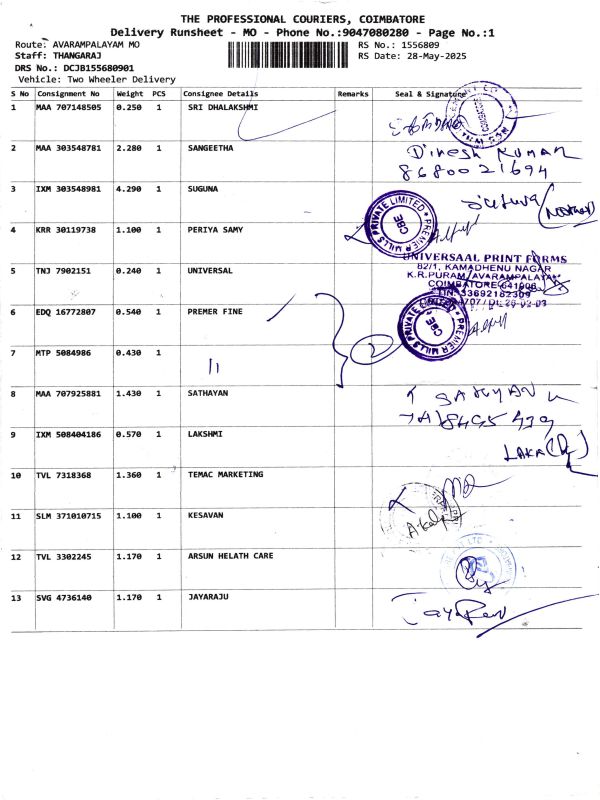 THE PROFESSIONAL COURIERS, COIMBATORE
Delivery Runsheet - MO - Phone No.:9047080280 - Page No.:1
Route: AVARAMPALAYAM MO RS No.: 1556809
Staff: THANGARAJ RS Date: 28-May-2025
DRS No.: DCJB155680901
Vehicle: Two Wheeler Delivery
S No Consignment No Weight PCS Consignee Details Remarks Seal & Signature
1 MAA 707148505 0.250 1 SRI DHALAKSHMI
2 MAA 303548781 2.280 1 SANGEETHA Dinesh Kumar
8680021694
3 IXM 303548981 4.290 1 SUGUNA
PREMIER MILLS PRIVATE LIMITED
CBE
4 KRR 30119738 1.100 1 PERIYA SAMY
UNIVERSAAL PRINT FORMS
82/1, KAMADHENU NAGAR
K.R.PURAM, AVARAMPALAYAM
COIMBATORE 641006
5 TNJ 7902151 0.240 1 UNIVERSAL
6 EDQ 16772807 0.540 1 PREMER FINE
PREMIER MILLS PRIVATE LIMITED
CBE
7 MTP 5084986 0.430 1 11 2
8 MAA 707925881 1.430 1 SATHAYAN
9 IXM 508404186 0.570 1 LAKSHMI
10 TVL 7318368 1.360 1 TEMAC MARKETING
11 SLM 371010715 1.100 1 KESAVAN
12 TVL 3302245 1.170 1 ARSUN HELATH CARE
13 SVG 4736140 1.170 1 JAYARAJU